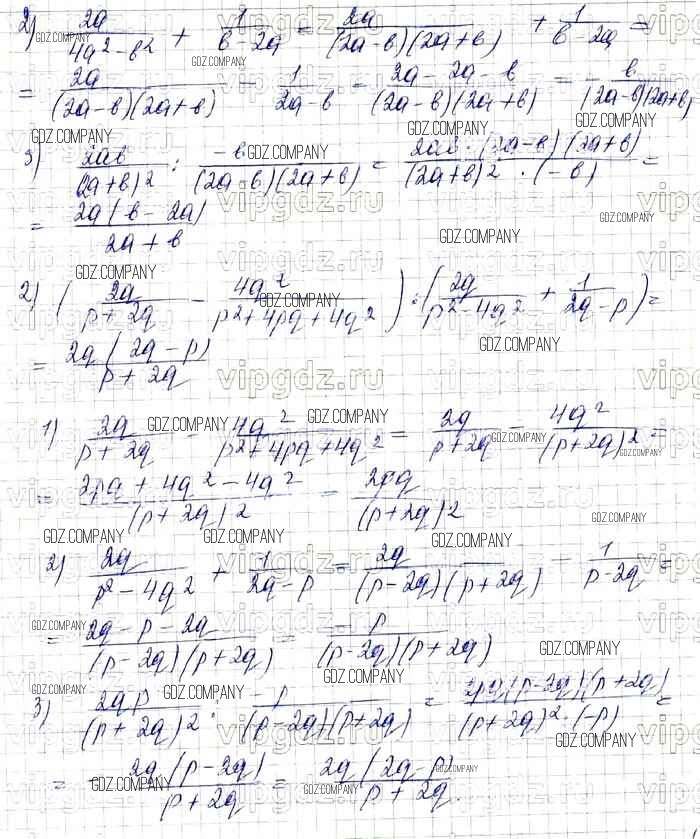 2) 2a/(4a² - b²) + 1/(b - 2a) = 2a/((2a - b)(2a + b)) + 1/(b - 2a) =
= 2a/((2a - b)(2a + b)) - 1/(2a - b) = (2a - 2a - b)/((2a - b)(2a + b)) = - b/((2a - b)(2a + b))
3) 2ab/(2a + b)² : -b/((2a - b)(2a + b)) = 2ab · (2a - b)(2a + b)/((2a + b)² · (-b)) =
= 2a(b - 2a)/(2a + b)
2) (2q/(p + 2q) - 4q²/(p² + 4pq + 4q²)) : (2q/(p² - 4q²) + 1/(2q - p)) =
= 2q(2q - p)/(p + 2q)
1) 2q/(p + 2q) - 4q²/(p² + 4pq + 4q²) = 2q/(p + 2q) - 4q²/(p + 2q)² =
= (2pq + 4q² - 4q²)/(p + 2q)² = 2pq/(p + 2q)²
2) 2q/(p² - 4q²) + 1/(2q - p) = 2q/((p - 2q)(p + 2q)) - 1/(p - 2q) =
= (2q - p - 2q)/((p - 2q)(p + 2q)) = -p/((p - 2q)(p + 2q))
3) 2qp/(p + 2q)² : -p/((p - 2q)(p + 2q)) = 2pq(p - 2q)(p + 2q)/((p + 2q)² · (-p)) =
= - 2q(p - 2q)/(p + 2q) = 2q(2q - p)/(p + 2q).
GDZ.COMPANY
vipgdz.ru